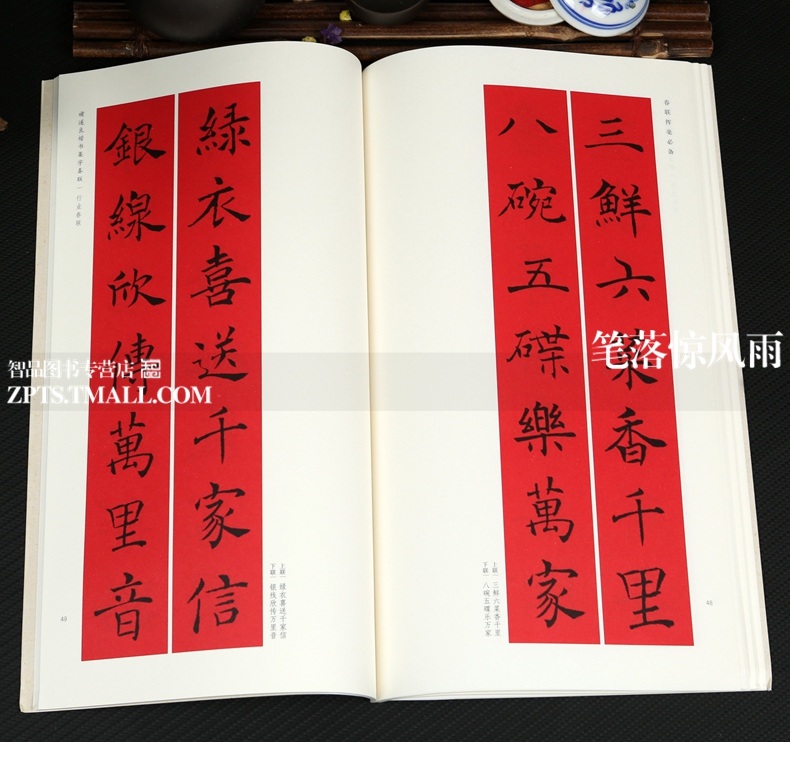 春联挥毫必备
三鮮六菜香千里
八碗五碟樂萬家
上联 三鲜六菜香千里
下联 八碗五碟乐万家
48
褚遂良楷书集字春联 行业春联
緑衣喜送千家信
銀線欣傳萬里音
上联 绿衣喜送千家信
下联 银线欣传万里音
49
智品图书专营店
ZPTS.TMALL.COM
笔落惊风雨